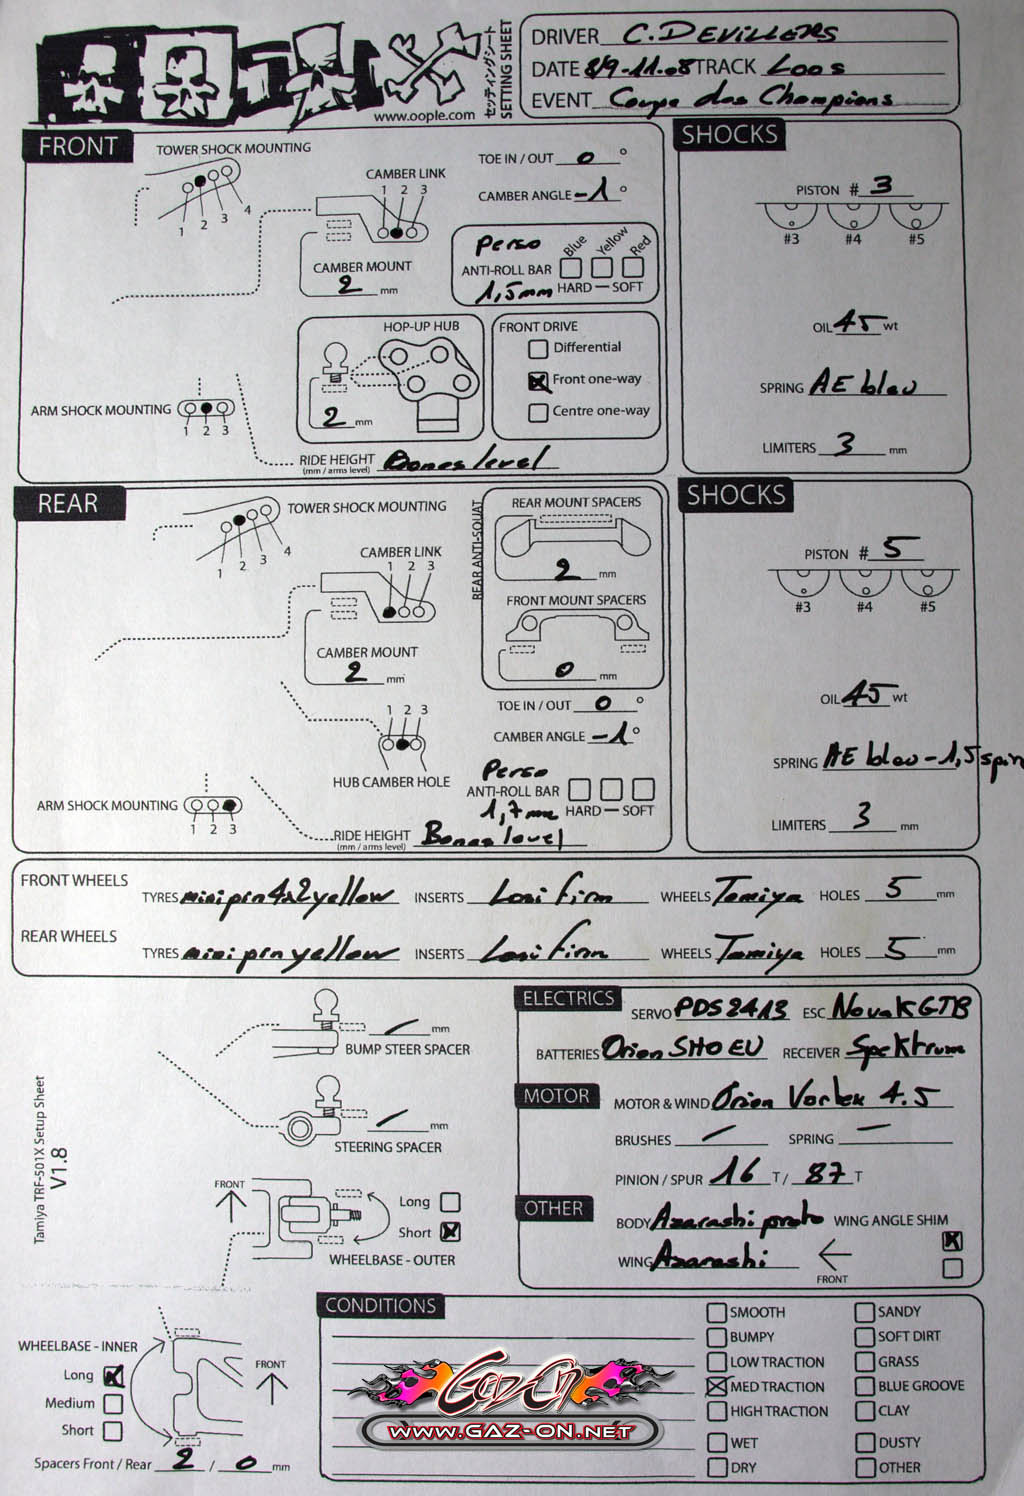 www.oople.com
セッティングシート
SETTING SHEET
DRIVER C. DEVILLERS
DATE 8/9-11.08 TRACK Loos
EVENT Coupe des Champions
FRONT
TOWER SHOCK MOUNTING
1 2 3 4
CAMBER LINK
1 2 3
CAMBER MOUNT
2 mm
TOE IN / OUT 0 °
CAMBER ANGLE -1 °
Perso
Blue Yellow Red
ANTI-ROLL BAR
1,5mm HARD — SOFT
HOP-UP HUB
2 mm
FRONT DRIVE
Differential
Front one-way
Centre one-way
ARM SHOCK MOUNTING
1 2 3
RIDE HEIGHT Bones level
(mm / arms level)
SHOCKS
PISTON # 3
#3 #4 #5
OIL 45 wt
SPRING AE bleu
LIMITERS 3 mm
REAR
TOWER SHOCK MOUNTING
1 2 3 4
CAMBER LINK
1 2 3
CAMBER MOUNT
2 mm
REAR ANTI-SQUAT
REAR MOUNT SPACERS
2 mm
FRONT MOUNT SPACERS
0 mm
TOE IN / OUT 0 °
CAMBER ANGLE -1 °
1 2 3
HUB CAMBER HOLE
Perso
ANTI-ROLL BAR
1,7mm HARD — SOFT
ARM SHOCK MOUNTING
1 2 3
RIDE HEIGHT Bones level
(mm / arms level)
SHOCKS
PISTON # 5
#3 #4 #5
OIL 45 wt
SPRING AE bleu -1,5 spin
LIMITERS 3 mm
FRONT WHEELS
TYRES minipin 4x2 yellow INSERTS Losi firm WHEELS Tamiya HOLES 5 mm
REAR WHEELS
TYRES minipin yellow INSERTS Losi firm WHEELS Tamiya HOLES 5 mm
/ mm
BUMP STEER SPACER
/ mm
STEERING SPACER
Tamiya TRF-501X Setup Sheet
V1.8
FRONT
Long
Short
WHEELBASE - OUTER
ELECTRICS
SERVO PDS2413 ESC Novak GTB
BATTERIES Orion SHO EU RECEIVER Spektrum
MOTOR
MOTOR & WIND Orion Vortex 4.5
BRUSHES / SPRING —
PINION / SPUR 16 T / 87 T
OTHER
BODY Azarashi proto WING ANGLE SHIM
WING Azarashi
FRONT
WHEELBASE - INNER
Long
Medium
Short
FRONT
Spacers Front / Rear 2 / 0 mm
CONDITIONS
SMOOTH
BUMPY
LOW TRACTION
MED TRACTION
HIGH TRACTION
WET
DRY
SANDY
SOFT DIRT
GRASS
BLUE GROOVE
CLAY
DUSTY
OTHER
Gaz On
WWW.GAZ-ON.NET